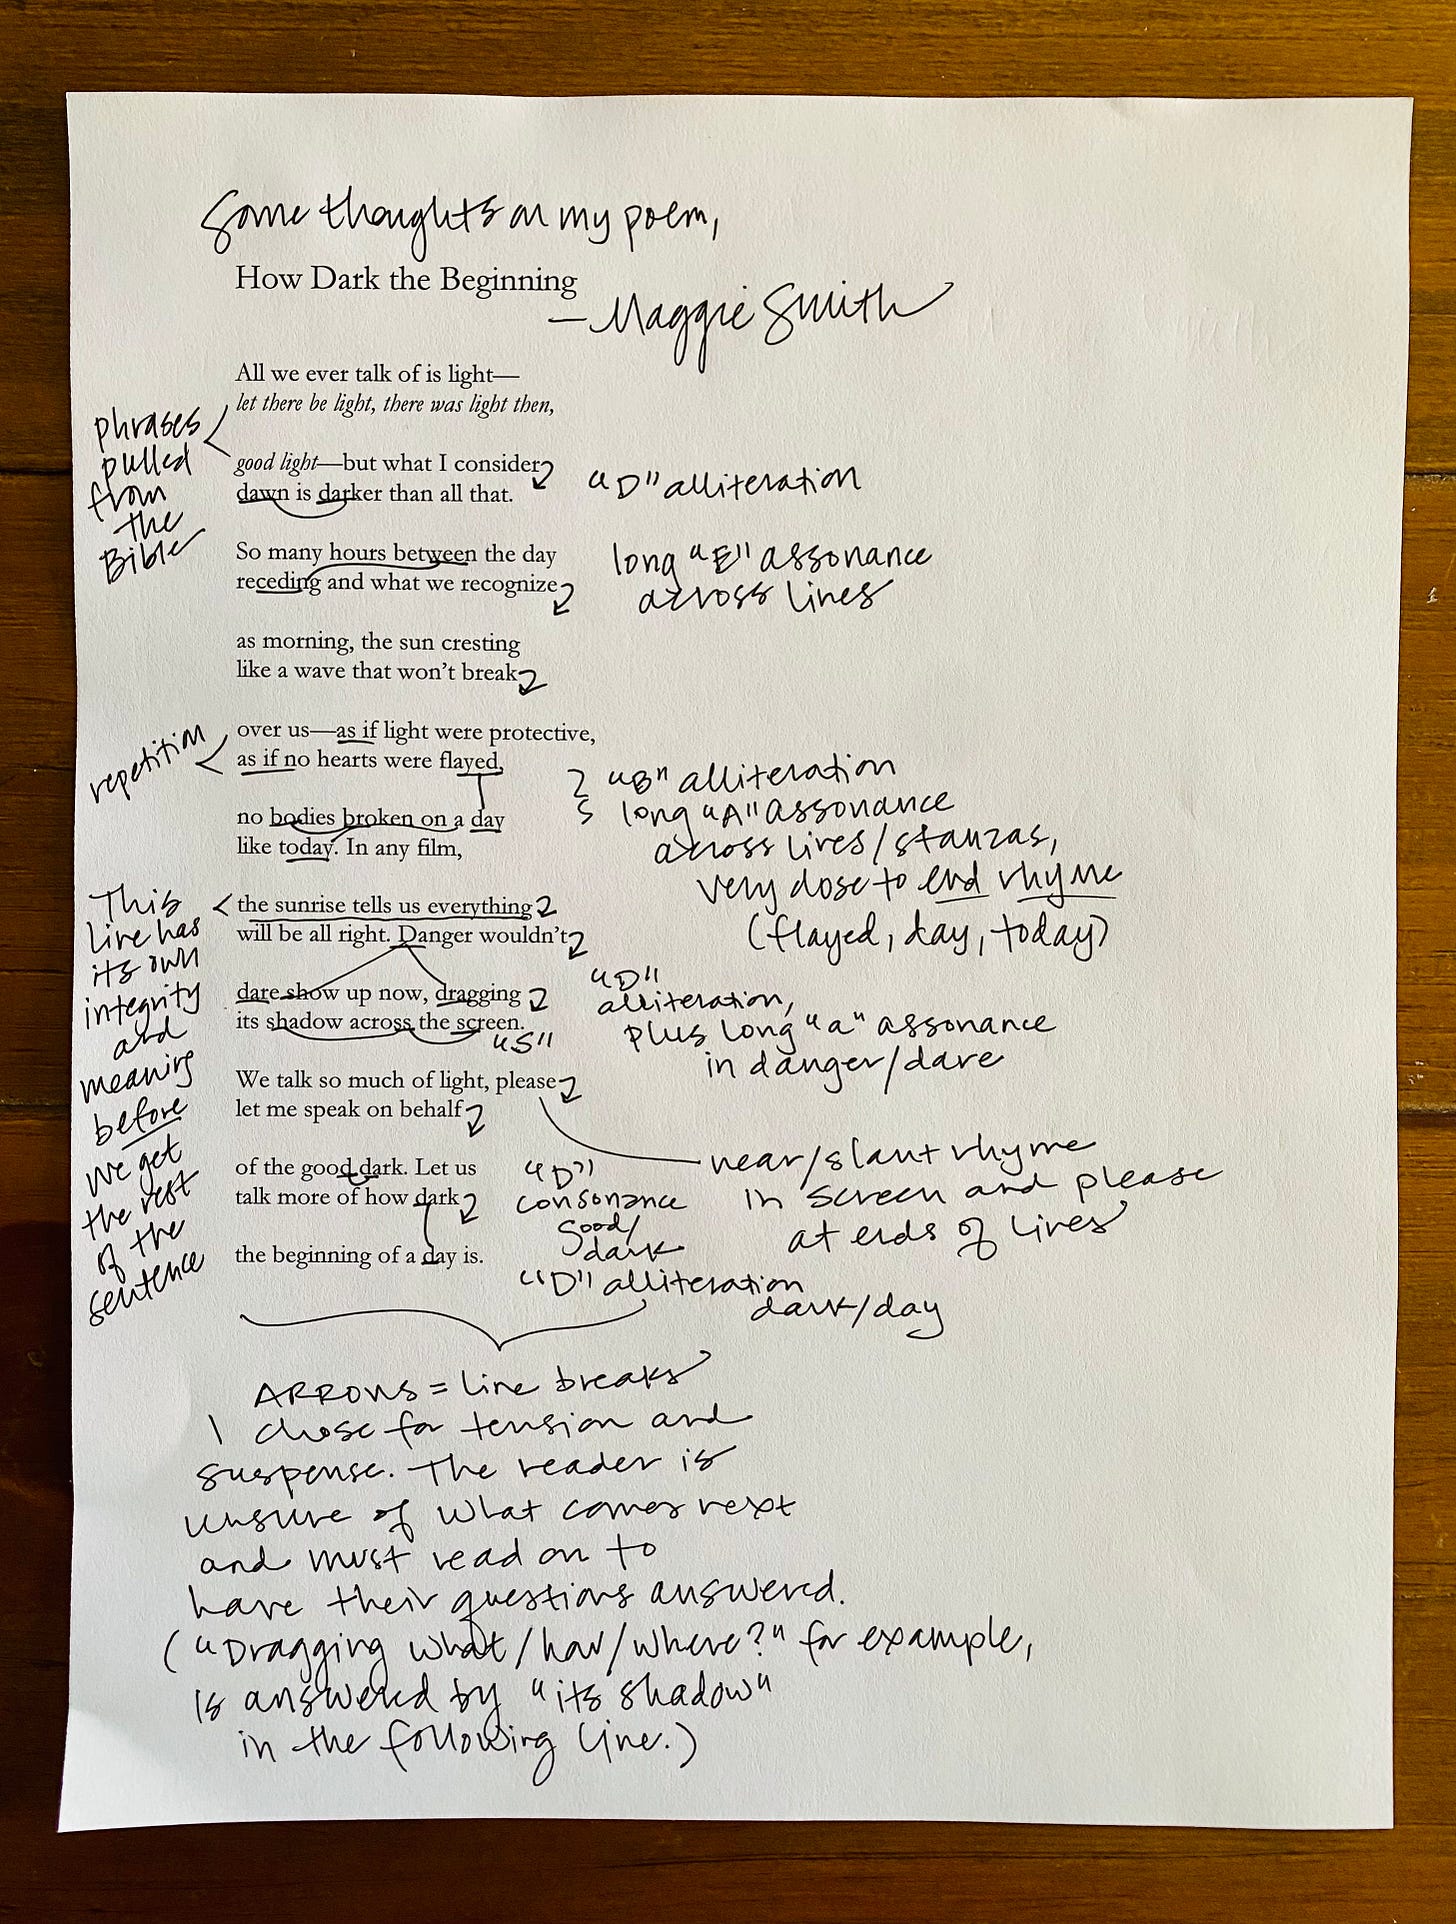 Some thoughts on my poem,
How Dark the Beginning
—Maggie Smith
All we ever talk of is light—
let there be light, there was light then,
good light—but what I consider
dawn is darker than all that.
phrases
pulled
from
the
Bible
"D" alliteration
So many hours between the day
receding and what we recognize
long "E" assonance
across lines
as morning, the sun cresting
like a wave that won't break
over us—as if light were protective,
as if no hearts were flayed,
repetition
no bodies broken on a day
like today. In any film,
"B" alliteration
long "A" assonance
across lines/stanzas,
very close to end rhyme
(flayed, day, today)
the sunrise tells us everything
will be all right. Danger wouldn't
This
line has
its own
integrity
and
meaning
before
we get
the rest
of the
sentence
dare show up now, dragging
its shadow across the screen.
"S"
"D"
alliteration,
plus long "a" assonance
in danger/dare
We talk so much of light, please
let me speak on behalf
near/slant rhyme
in screen and please
at ends of lines
of the good dark. Let us
talk more of how dark
"D"
consonance
good/
dark
the beginning of a day is.
"D" alliteration
dark/day
ARROWS = line breaks
I chose for tension and
suspense. The reader is
unsure of what comes next
and must read on to
have their questions answered.
("Dragging what/how/where?" for example,
is answered by "its shadow"
in the following line.)